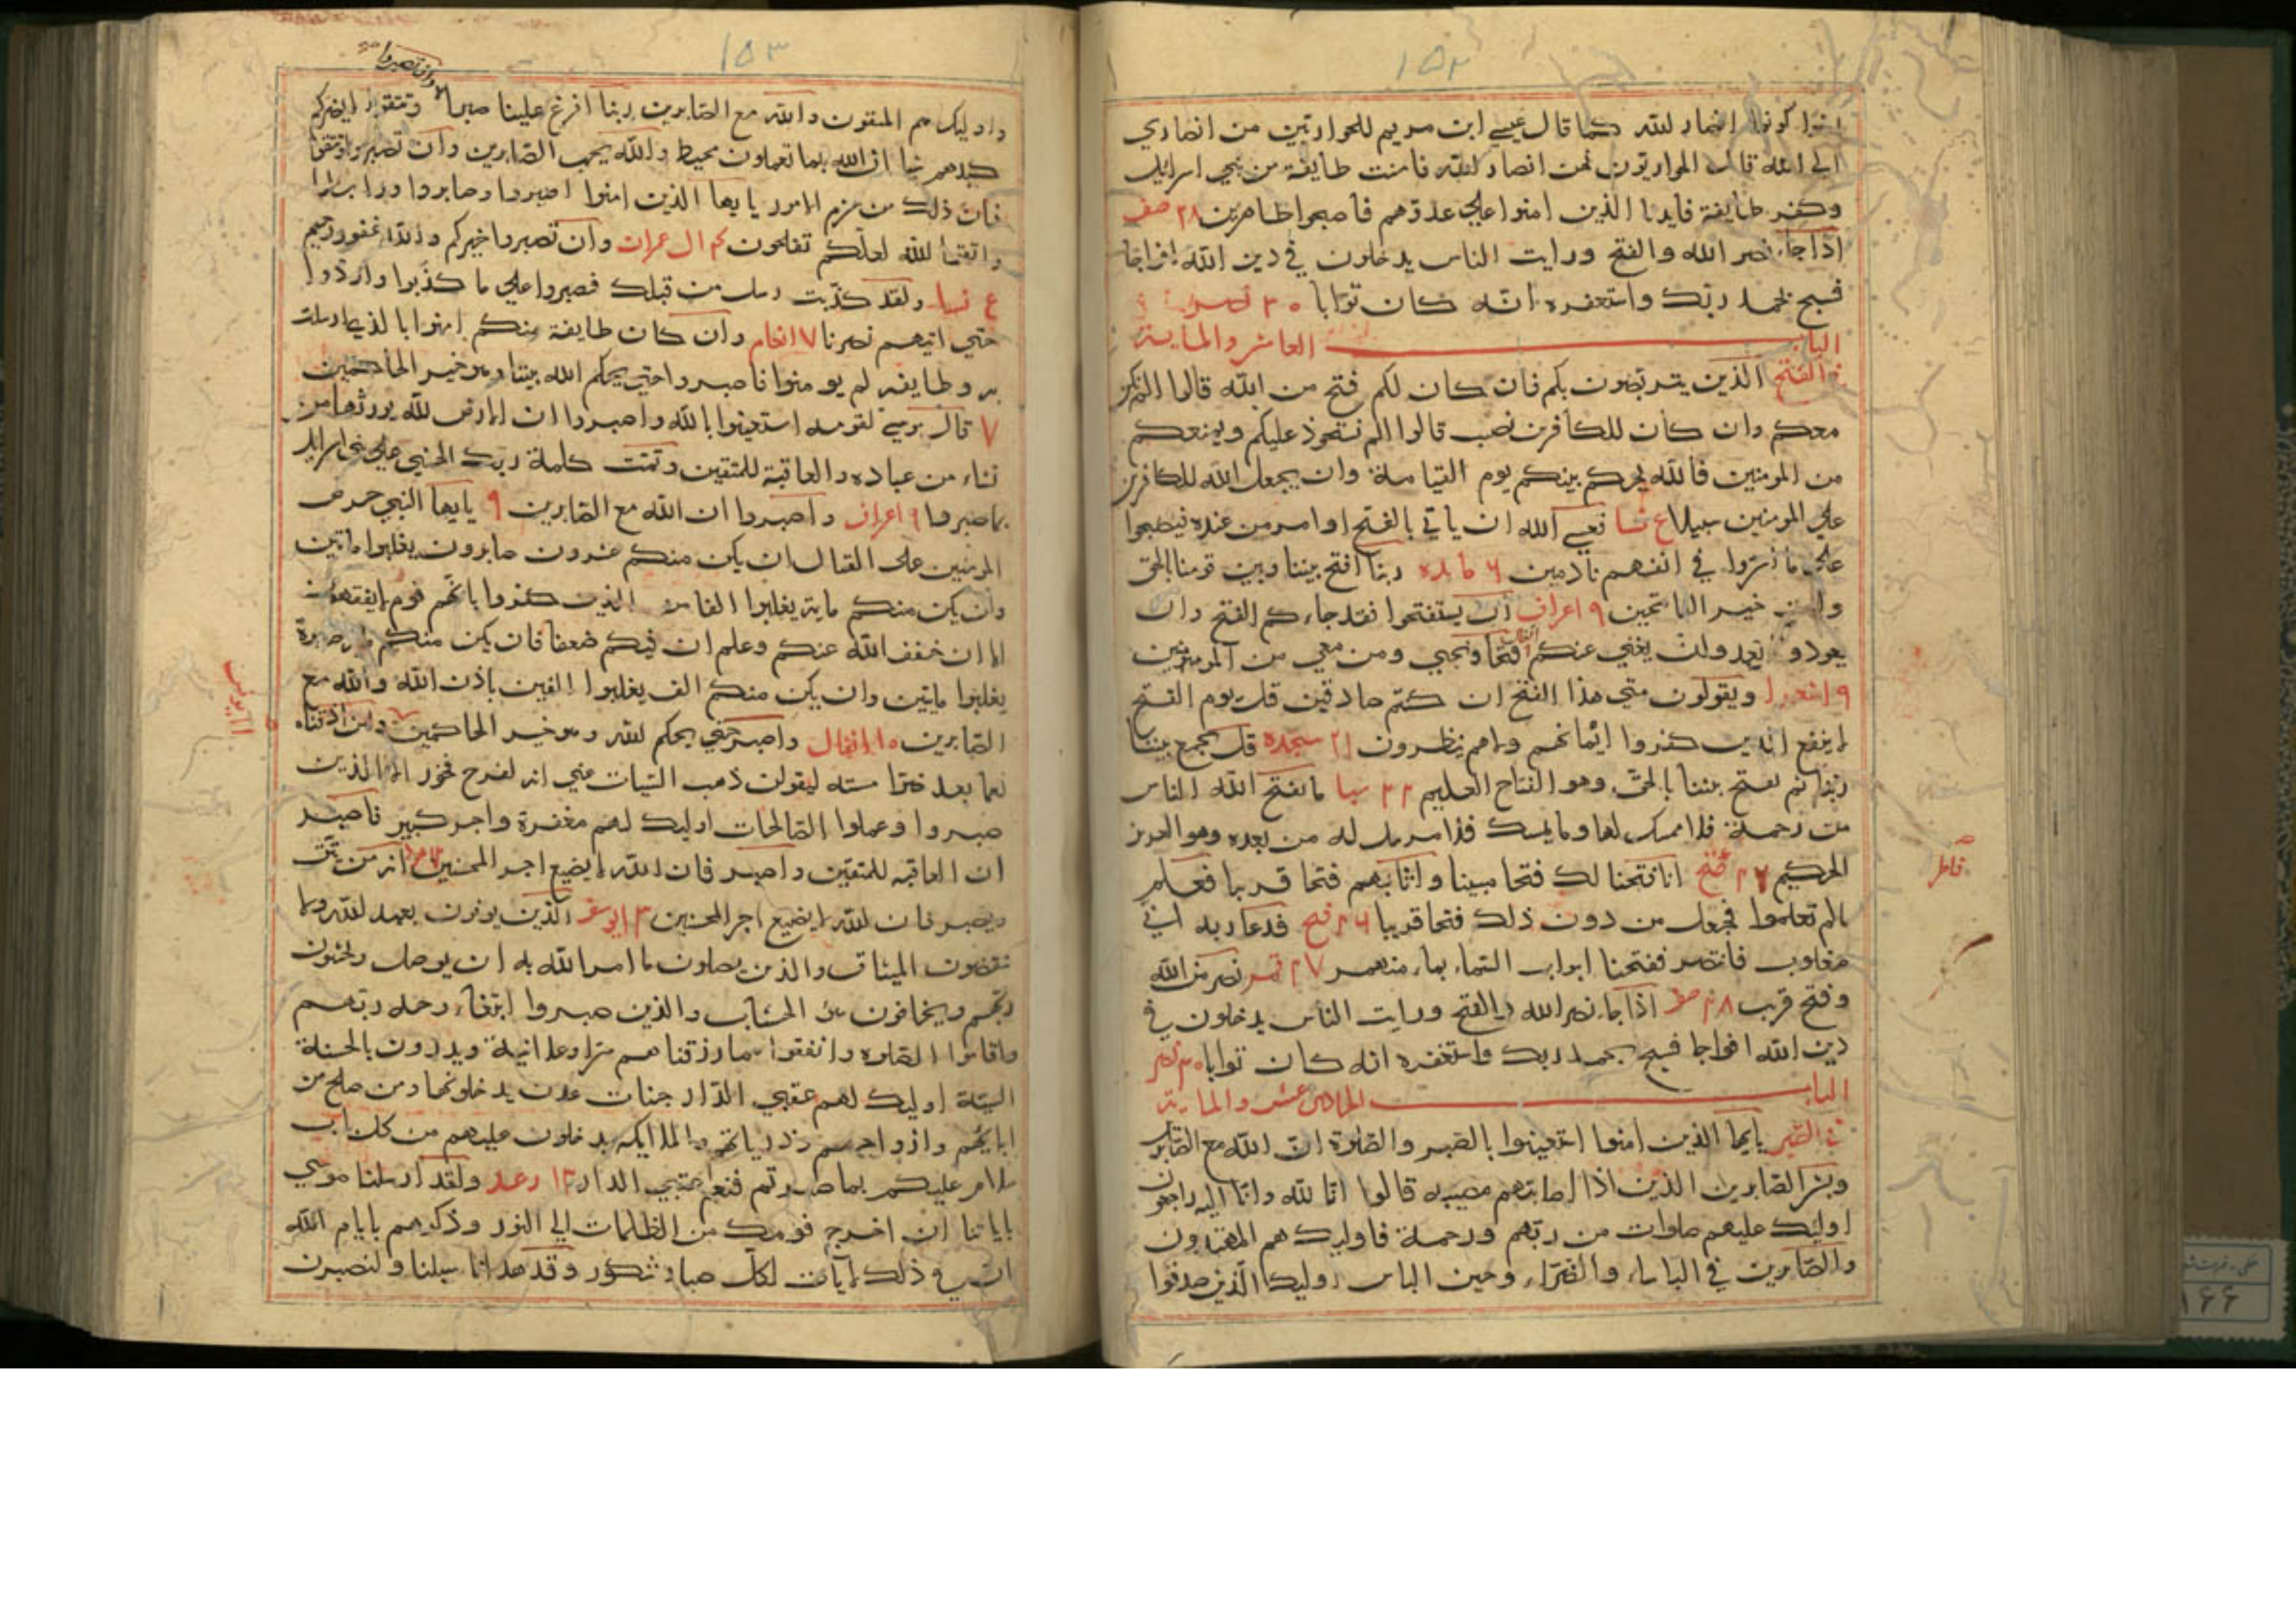 ۱۵۲
امنوا كونوا انصار لله كما قال عيسي ابن مريم للحواريين من انصاري
الي الله قال الحواريون نحن انصار لله فامنت طايفة من بني اسرائيل
وكفر طايفة فايدنا الذين امنوا علي عدوهم فاصبحوا ظاهرين ۲۸ صف
اذا جاء نصر الله والفتح ورايت الناس يدخلون في دين الله افواجا
فسبح بحمد ربك واستغفره انه كان توابا ۳۰
الباب العاشر والماية
في الفتح الذين يتربصون بكم فان كان لكم فتح من الله قالوا الم نكن
معكم وان كان للكافرين نصيب قالوا الم نستحوذ عليكم ويمنعكم
من المومنين فالله يحكم بينكم يوم القيامة وان يجعل الله للكافرين
علي المومنين سبيلا ع نسا فعسي الله ان ياتي بالفتح او امر من عنده فيصبحوا
علي ما اسروا في انفسهم نادمين ۶ مايده ربنا افتح بيننا وبين قومنا بالحق
وانت خير الفاتحين ۹ اعراف ان يستفتحوا فقد جاءكم الفتح وان
يعودوا نعد ولن يغني عنكم فتحا ونجني ومن معي من المومنين
۹ ويقولون متي هذا الفتح ان كنتم صادقين قل يوم الفتح
لا ينفع الذين كفروا ايمانهم ولاهم ينظرون ۲۱ سجده قل يجمع بيننا
ربنا ثم يفتح بيننا بالحق وهو الفتاح العليم ۲۲ سبا ما يفتح الله للناس
من رحمة فلا ممسك لها وما يمسك فلا مرسل له من بعده وهو العزيز
الحكيم ۲۲ فتح انا فتحنا لك فتحا مبينا واثابهم فتحا قريبا فعلم
مالم تعلموا فجعل من دون ذلك فتحا قريبا ۲۶ فتح فدعا ربه اني
مغلوب فانتصر ففتحنا ابواب السماء بماء منهمر ۲۷ قمر نصر من الله
وفتح قريب ۲۸ صف اذا جاء نصر الله والفتح ورايت الناس يدخلون في
دين الله افواجا فسبح بحمد ربك واستغفره انه كان توابا ۳۰ نصر
الباب الحادي عشر والماية
في الصبر يايها الذين امنوا استعينوا بالصبر والصلوة ان الله مع الصابرين
وبشر الصابرين الذين اذا اصابتهم مصيبه قالوا انا لله وانا اليه راجعون
اوليك عليهم صلوات من ربهم ورحمة فاوليك هم المهتدون
والصابرين في الباساء والضراء وحين الباس اوليك الذين صدقوا
فاطر
۱۵۳
وان تصبروا
واوليك هم المتقون والله مع الصابرين ربنا افرغ علينا صبرا وتتقوا لا يضركم
كيدهم شيا ان الله بما تعملون محيط والله يحب الصابرين وان تصبروا وتتقوا
فان ذلك من عزم الامور يا يها الذين امنوا اصبروا وصابروا ورابطوا
واتقوا الله لعلكم تفلحون ۴ ال عمران وان تصبروا خير لكم والله غفور رحيم
ع نسا ولقد كذبت رسل من قبلك فصبروا علي ما كذبوا واوذوا
حتي اتيهم نصرنا ۷ انعام وان كان طايفة منكم امنوا بالذي ارسلت
به وطايفه لم يومنوا فاصبروا حتي يحكم الله بيننا وهو خير الحاكمين
۷ قال موسي لقومه استعينوا بالله واصبروا ان الارض لله يورثها من
يشاء من عباده والعاقبة للمتقين وتمت كلمة ربك الحسني علي بني اسرائيل
بما صبروا ۹ اعراف واصبروا ان الله مع الصابرين ۹ يايها النبي حرض
المومنين علي القتال ان يكن منكم عشرون صابرون يغلبوا مايتين
وان يكن منكم ماية يغلبوا الفا من الذين كفروا بانهم قوم لا يفقهون
الان خفف الله عنكم وعلم ان فيكم ضعفا فان يكن منكم ماية صابرة
يغلبوا مايتين وان يكن منكم الف يغلبوا الفين باذن الله والله مع
الصابرين ۱۰ انفال واصبر حتي يحكم الله وهو خير الحاكمين ولئن اذقناه
نعما بعد ضرا مسته ليقولن ذهب السيات عني انه لفرح فخور الا الذين
صبروا وعملوا الصالحات اوليك لهم مغفرة واجر كبير فاصبر
ان العاقبه للمتقين واصبر فان الله لا يضيع اجر المحسنين انه من يتق
ويصبر فان الله لا يضيع اجر المحسنين ۱۳ يوسف الذين يوفون بعهد الله ولا
ينقضون الميثاق والذين يصلون ما امر الله به ان يوصل ويخشون
ربهم ويخافون سوء الحساب والذين صبروا ابتغاء وجه ربهم
واقاموا الصلوه وانفقوا مما رزقناهم سرا وعلانية ويدرون بالحسنة
السيئة اوليك لهم عقبي الدار جنات عدن يدخلونها ومن صلح من
ابايهم وازواجهم وذرياتهم والملايكه يدخلون عليهم من كل باب
سلام عليكم بما صبرتم فنعم عقبي الدار ۱۳ رعد ولقد ارسلنا موسي
باياتنا ان اخرج قومك من الظلمات الي النور وذكرهم بايام الله
ان في ذلك لآيات لكل صبار شكور وقد هدانا سبلنا ولنصبرن
۱۱ يونس